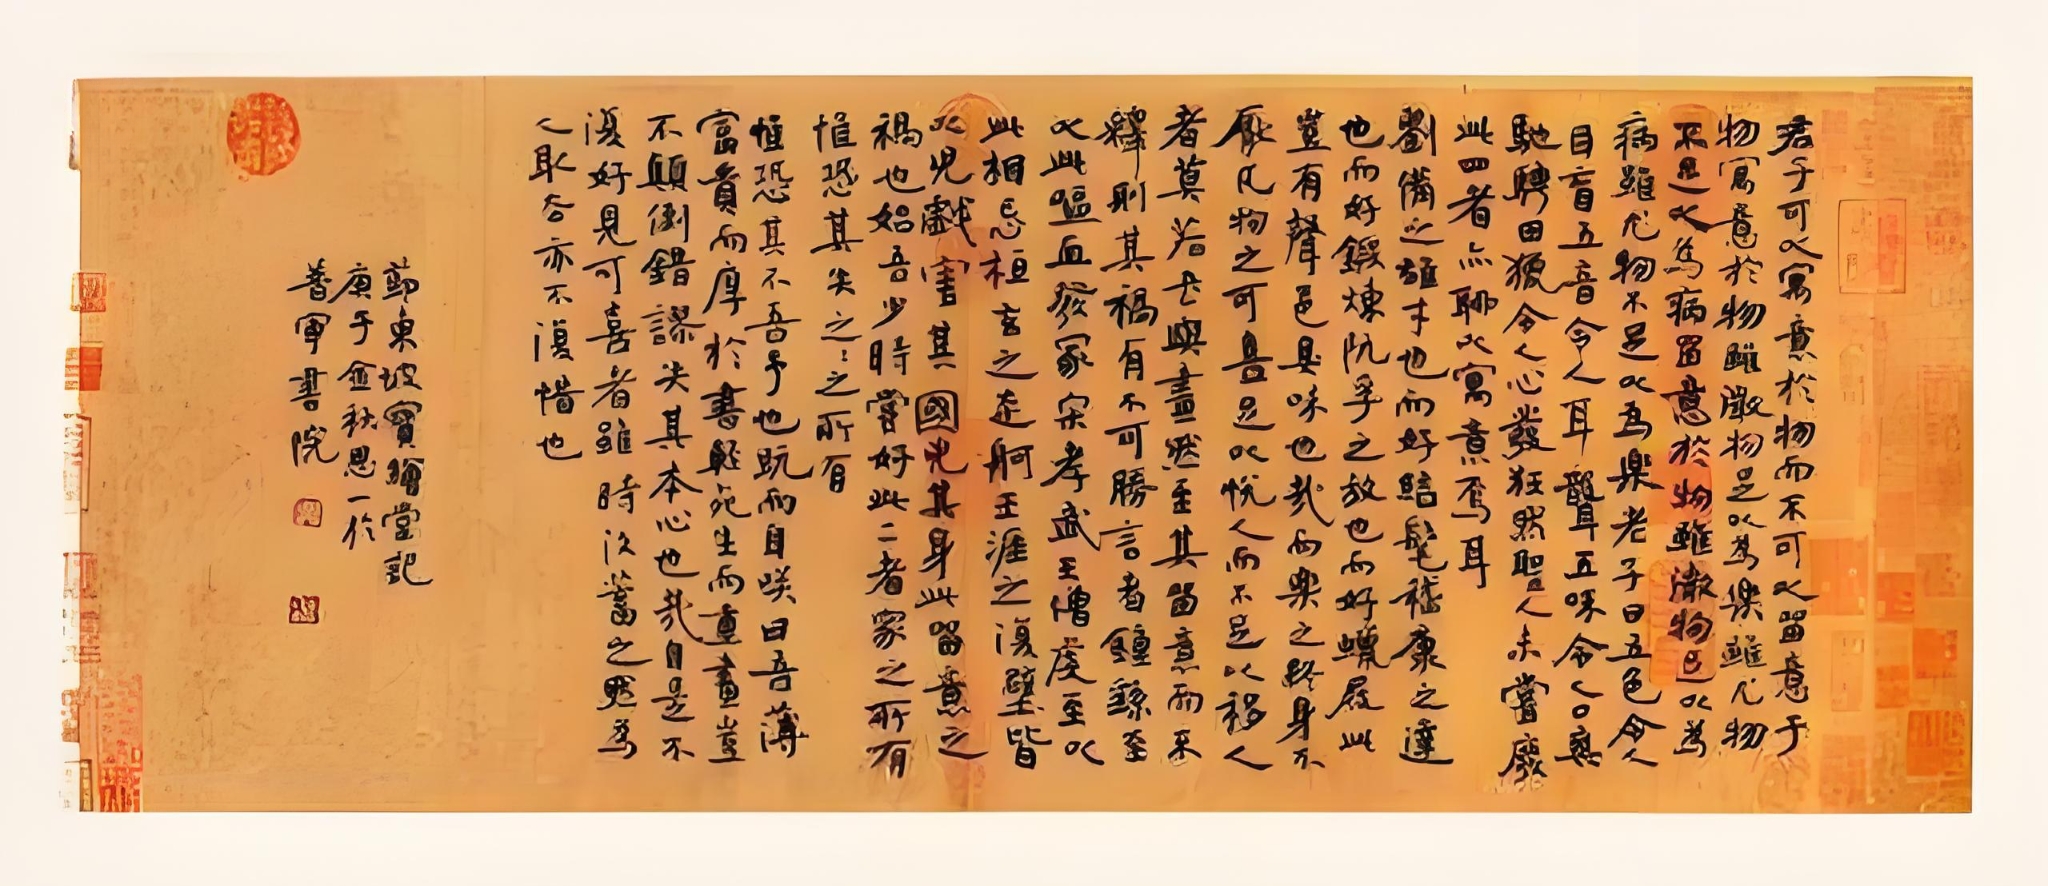 君子可以寓意於物而不可以留意于
物寓意於物雖微物足以為樂雖尤物
不足以為病留意於物雖微物足以為
病雖尤物不足以為樂老子曰五色令人
目盲五音令人耳聾五味令人口爽
馳騁田獵令人心發狂然聖人未嘗廢
此四者亦聊以寓意焉耳
劉備之雄才也而好結髦嵇康之達
也而好鍛煉阮孚之放也而好蠟屐此
豈有聲色臭味也哉而樂之終身不
厭凡物之可喜足以悅人而不足以移人
者莫若書與畫然至其留意而不
釋則其禍有不可勝言者鍾繇至
以此嘔血發冢宋孝武王僧虔至以
此相忌桓玄之走舸王涯之復壁皆
以兒戲害其國凶其身此留意之
禍也始吾少時嘗好此二者家之所有
惟恐其失之人之所有
惟恐其不吾予也既而自笑曰吾薄
富貴而厚於書輕死生而重畫豈
不顛倒錯謬失其本心也哉自是不
復好見可喜者雖時復蓄之然為
人取去亦不復惜也
節東坡寶繪堂記
庚子金秋思一於
普寧書院